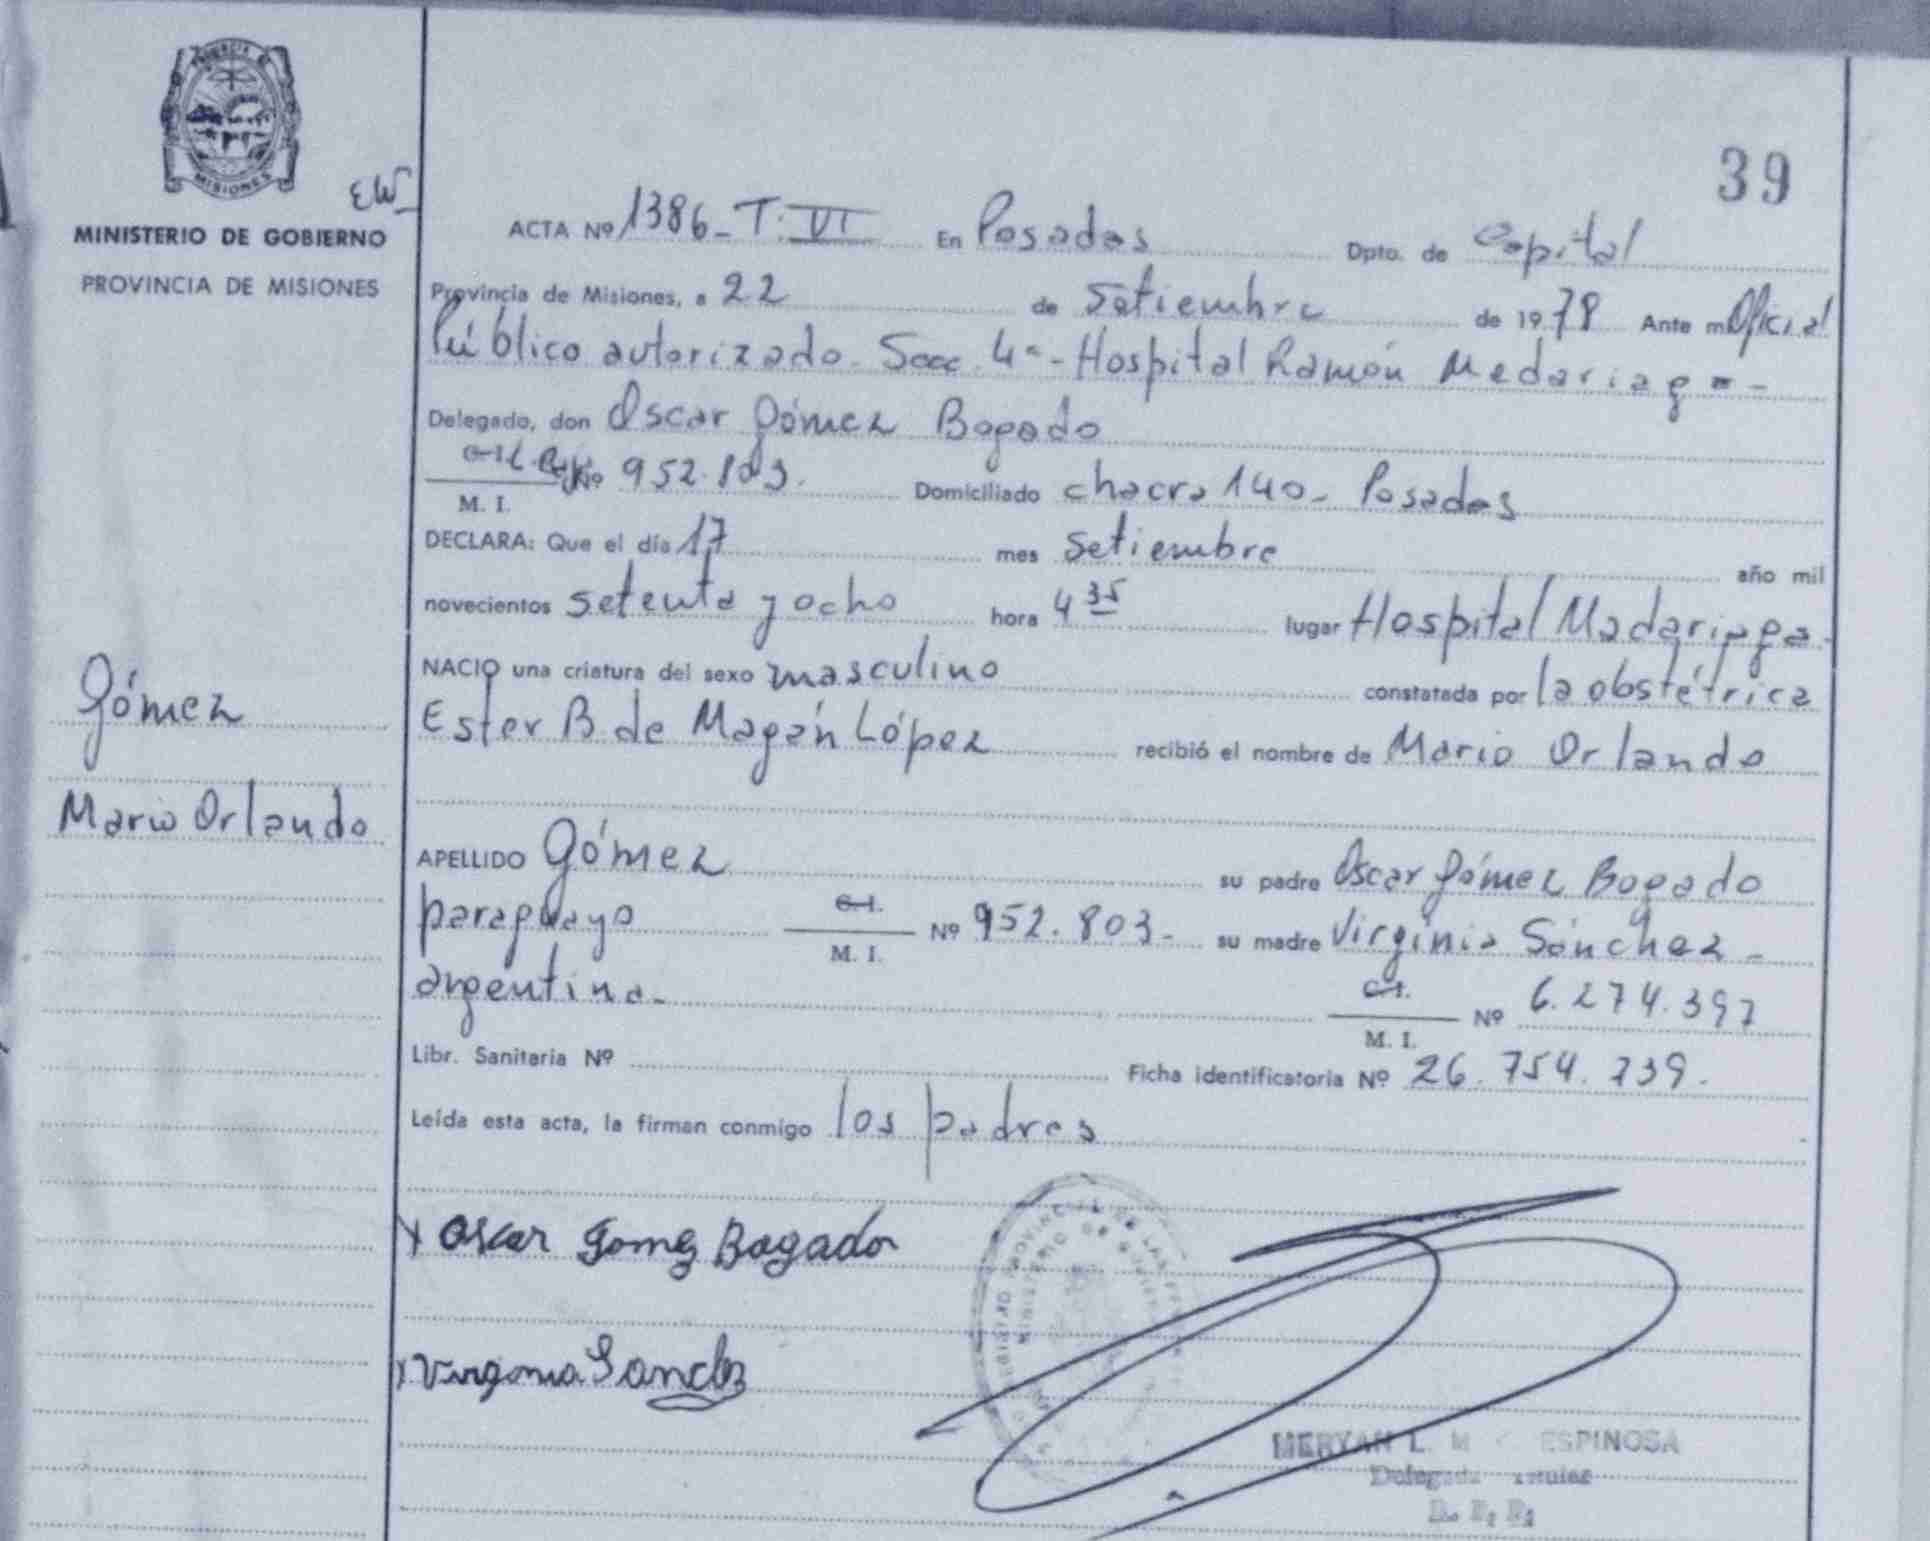 PROVINCIA DE
MISIONES
EW
MINISTERIO DE GOBIERNO
PROVINCIA DE MISIONES
Gómez
Mario Orlando
39
ACTA Nº 1386-T:VI En Posadas Dpto. de Capital
Provincia de Misiones, a 22 de Setiembre de 1978 Ante mí Oficial
Público autorizado. Secc. 4ª - Hospital Ramón Medariaga -
Delegado, don Oscar Gómez Bogado
C.I. M. I. Nº 952.803. Domiciliado chacra 140 - Posadas
DECLARA: Que el día 17 mes Setiembre año mil
novecientos setenta y ocho hora 4 35 lugar Hospital Madariaga.
NACIO una criatura del sexo masculino constatada por la obstétrica
Ester B. de Magán López recibió el nombre de Mario Orlando
APELLIDO Gómez su padre Oscar Gómez Bogado
paraguayo C.I. M. I. Nº 952.803- su madre Virginia Sánchez -
argentina- C.I. M. I. Nº 6.274.397
Libr. Sanitaria Nº Ficha identificatoria Nº 26.754.739.
Leída esta acta, la firman conmigo los padres
x Oscar Gomez Bogado
x Virginia Sanchez
MERYAN L. M ESPINOSA